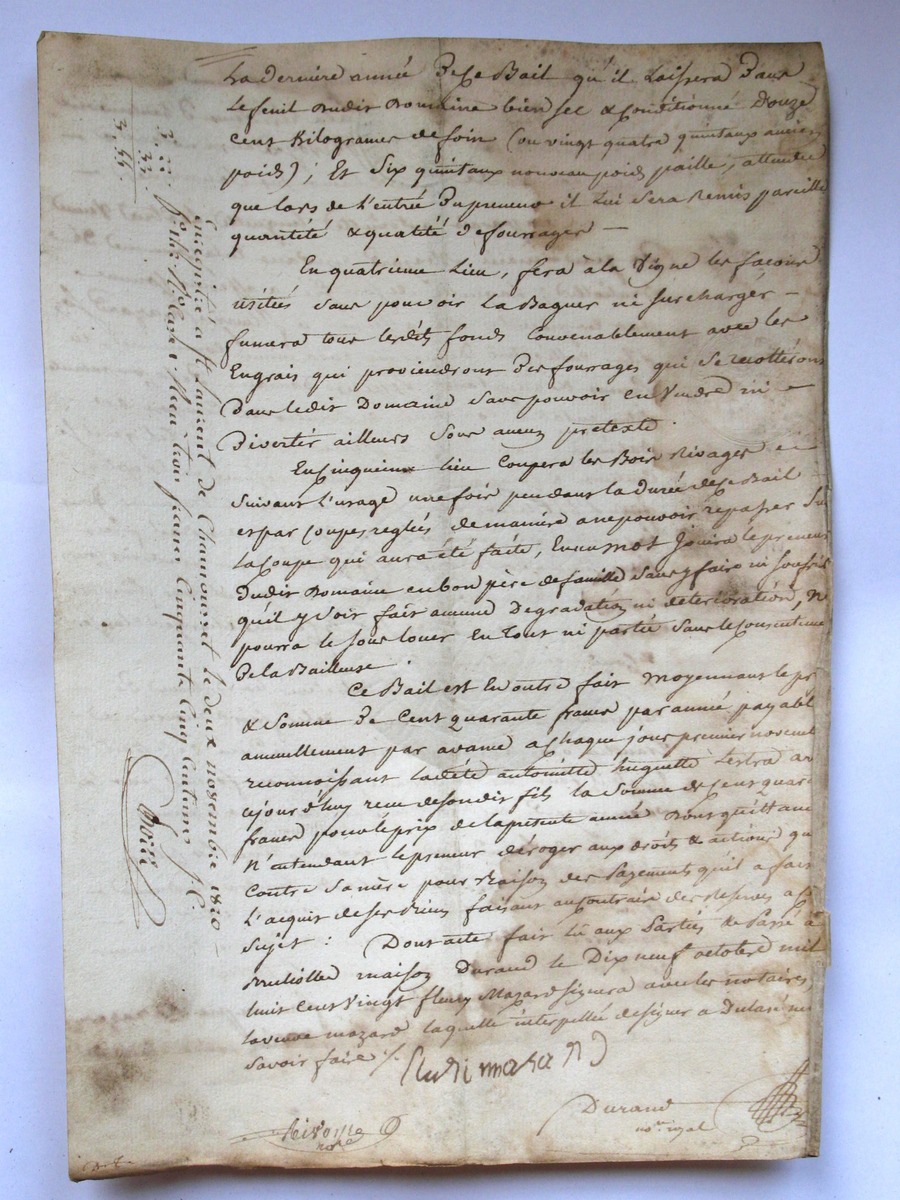 La derniere année De ce Bail qu'il Laissera Dans
Le fenil Dudit Domaine bien sec & Conditionné Douze
Cent Kilogrames de foin (ou vingt quatre quintaux ancien
poids); Et Six quintaux nouveau poids paille, attendu
que lors de L'entrée Du preneur il Lui Sera Remis pareille
quantité & qualité De fourrages —
En quatrieme Lieu, fera à la Vigne les façons
usitées sans pouvoir La ni surcharger —
fumera tous lesdits fonds Convenablement avec les
Engrais qui proviendront Des fourrages qui Se recolterons
Dans ledit Domaine sans pouvoir en Vendre ni
Divertir ailleurs Sous aucun pretexte.
En Cinquieme Lieu Coupera les Bois Rivages
Suivant L'usage une fois pendant la Durée de ce Bail
et par Coupes reglées de maniere a ne pouvoir repasser Su
La Coupe qui aura été faite, En un mot Jouira le preneur
Dudit Domaine en bon père de famille Sans y faire ni Souffrir
qu'il y Soit fait aucune Dégradation ni déterioration, Ne
pourra le Sous Louer En Tout ni partie Sans le Consentement
De la Bailleuse.
Ce Bail est En outre fait Moyennant le pr
& Somme De Cent quarante francs par année payabl
annuellement par avance a Chaque jour premier novemb
reconnoissant ladite antoinette huguette Lestra
cejourd'huy recu de sondit fils la Somme de Cent quar
francs pour le prix de la presente année Dont quittanc
N'entendant le preneur déroger aux droits & actions qu
Contre Sa mère pour Raison des Payements qu'il a fait
L'acquit de ses faisant au Contraire des reserves a
Sujet: Dont acte fait Lu aux Parties & Passé à
maison Durand le Dix neuf octobre mil
huit Cent Vingt fleury Mazard Signera avec les notaires,
la veuve mazard laquelle interpellée de signer a Déclaré ne
Savoir faire
mazard
Durand
no.re royal
not.re
Enregistré à St Laurent de Chamousset le deux novembre 1820 —
Reçu trois francs Cinquante Cinq Centimes
3. 55